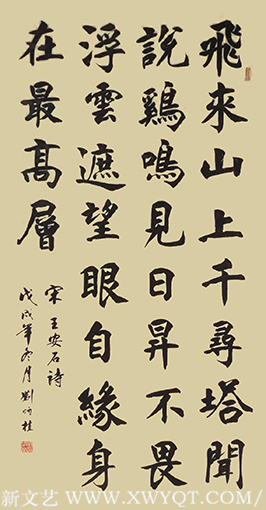 飛來山上千尋塔聞
說鷄鳴見日昇不畏
浮雲遮望眼自緣身
在最高層
宋王安石詩
戊戌年冬月劉桂
新文艺 WWW.XWYQT.COM/